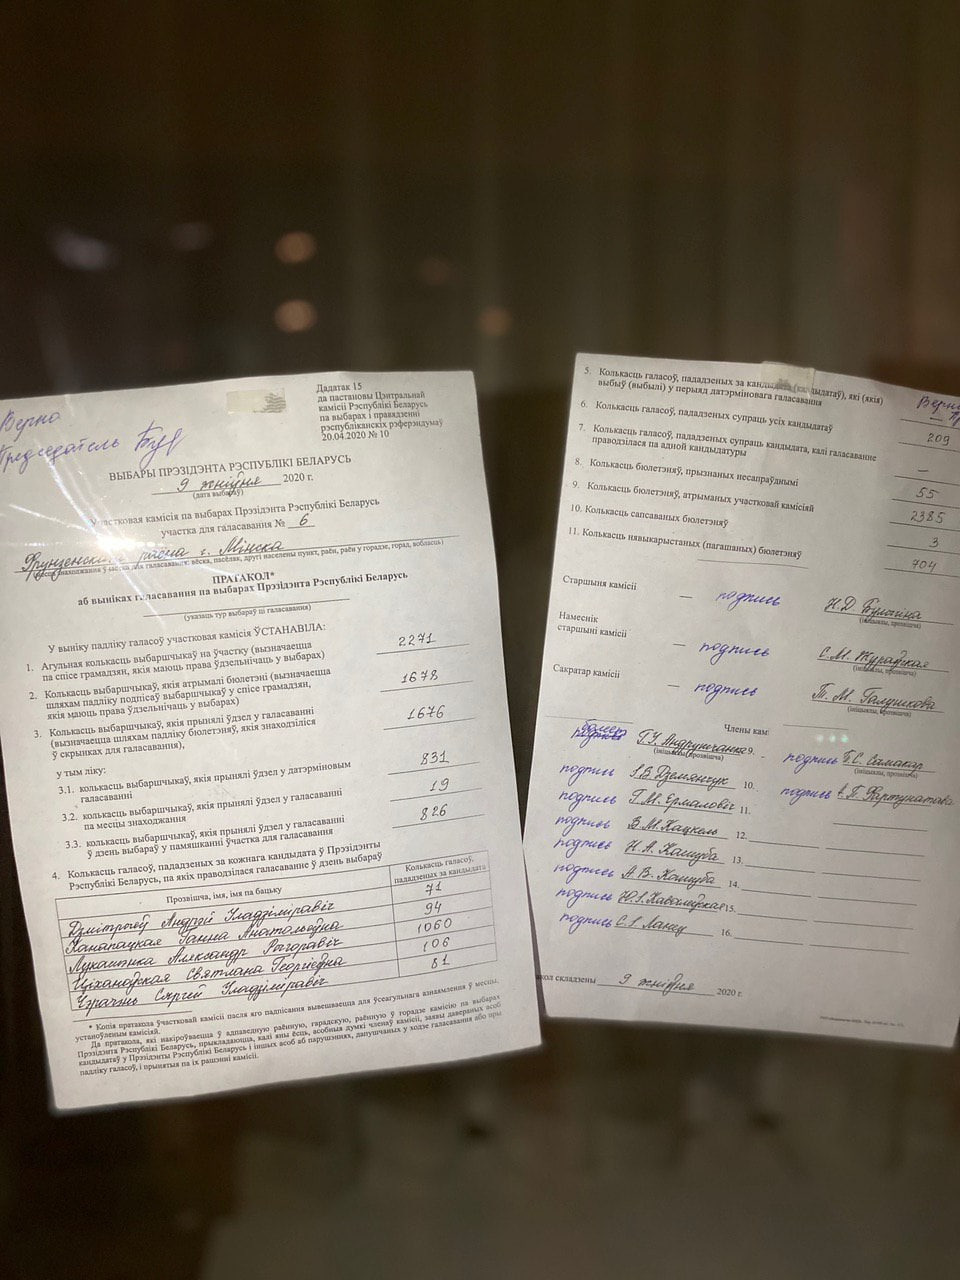 Верно
Председатель
Дадатак 15
да пастановы Цэнтральнай
камісіі Рэспублікі Беларусь
па выбарах і правядзенні
рэспубліканскіх рэферэндумаў
20.04.2020 № 10
ВЫБАРЫ ПРЭЗІДЭНТА РЭСПУБЛІКІ БЕЛАРУСЬ
9 жніўня 2020 г.
(дата выбараў)
Участковая камісія па выбарах Прэзідэнта Рэспублікі Беларусь
участка для галасавання № 6
Фрунзенскага раёна г. Мінска
месца знаходжання ўчастка для галасавання: вёска, пасёлак, другі населены пункт, раён, раён у горадзе, горад, вобласць)
ПРАТАКОЛ*
аб выніках галасавання на выбарах Прэзідэнта Рэспублікі Беларусь
(указаць тур выбараў ці галасавання)
У выніку падліку галасоў участковая камісія ЎСТАНАВІЛА:
1. Агульная колькасць выбаршчыкаў на ўчастку (вызначаецца
па спісе грамадзян, якія маюць права ўдзельнічаць у выбарах) 2271
2. Колькасць выбаршчыкаў, якія атрымалі бюлетэні (вызначаецца
шляхам падліку подпісаў выбаршчыкаў у спісе грамадзян,
якія маюць права ўдзельнічаць у выбарах) 1678
3. Колькасць выбаршчыкаў, якія прынялі ўдзел у галасаванні
(вызначаецца шляхам падліку бюлетэняў, якія знаходзіліся
ў скрынках для галасавання), 1676
у тым ліку:
3.1. колькасць выбаршчыкаў, якія прынялі ўдзел у датэрміновым
галасаванні 831
3.2. колькасць выбаршчыкаў, якія прынялі ўдзел у галасаванні
па месцы знаходжання 19
3.3. колькасць выбаршчыкаў, якія прынялі ўдзел у галасаванні
ў дзень выбараў у памяшканні ўчастка для галасавання 826
4. Колькасць галасоў, пададзеных за кожнага кандыдата ў Прэзідэнты
Рэспублікі Беларусь, па якіх праводзілася галасаванне ў дзень выбараў
Прозвішча, імя, імя па бацьку
Колькасць галасоў,
пададзеных за кандыдата
Дмітрыеў Андрэй Уладзіміравіч 71
Канапацкая Ганна Анатольеўна 94
Лукашэнка Аляксандр Рыгоравіч 1060
Ціханоўская Святлана Георгіеўна 106
Чэрачэнь Сяргей Уладзіміравіч 81
* Копія пратакола ўчастковай камісіі пасля яго падпісання вывешваецца для ўсеагульнага азнаямлення ў месцы,
устаноўленым камісіяй.
Да пратакола, які накіроўваецца ў адпаведную раённую, гарадскую, раённую ў горадзе камісію па выбарах
Прэзідэнта Рэспублікі Беларусь, прыкладаюцца, калі яны ёсць, асобныя думкі членаў камісіі, заявы давераных асоб
кандыдатаў у Прэзідэнты Рэспублікі Беларусь і іншых асоб аб парушэннях, дапушчаных у ходзе галасавання або пры
падліку галасоў, і прынятыя па іх рашэнні камісіі.
Верно
5. Колькасць галасоў, пададзеных за кандыдата (кандыдатаў), які (якія)
выбыў (выбылі) у перыяд датэрміновага галасавання —
6. Колькасць галасоў, пададзеных супраць усіх кандыдатаў 209
7. Колькасць галасоў, пададзеных супраць кандыдата, калі галасаванне
праводзілася па адной кандыдатуры —
8. Колькасць бюлетэняў, прызнаных несапраўднымі 55
9. Колькасць бюлетэняў, атрыманых участковай камісіяй 2385
10. Колькасць сапсаваных бюлетэняў 3
11. Колькасць нявыкарыстаных (пагашаных) бюлетэняў 704
Старшыня камісіі — подпись Н.Д. Булыгіна
(ініцыялы, прозвішча)
Намеснік
старшыні камісіі — подпись С.М. Жураўская
(ініцыялы, прозвішча)
Сакратар камісіі — подпись Т.М. Галушкова
(ініцыялы, прозвішча)
Члены кам
Г.У. Андрунчанка 9. подпись Г.С. Самакар
(ініцыялы, прозвішча) (ініцыялы, прозвішча)
подпись І.В. Дземянчук 10. подпись
подпись Г.М. Ермаловіч 11.
подпись В.М. Кацкель 12.
подпись Н.А. Кашуба 13.
подпись А.В. Кашуба 14.
подпись 15.
подпись 16.
кол складзены 9 жніўня 2020 г.